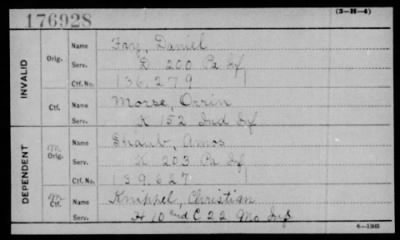 176928
(3-H-4)
INVALID
Orig.
Name Fay, Daniel
Serv. D 200 Pa Inf
Ctf. No. 136,279
Ctf.
Name Morse, Orrin
Serv. K 152 Ind Inf
DEPENDENT
m Orig.
Name Shaub, Amos
Serv. K 203 Pa Inf
Ctf. No. 139,627
m Ctf.
Name Knippel, Christian
Serv. H 10 and C 22 Mo Inf